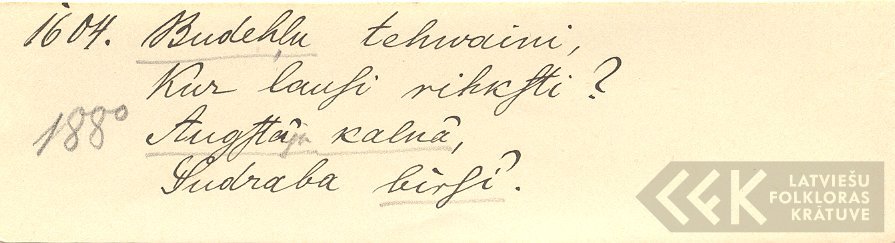 1604. Budehļu tehwaini,
Kur lausi rihksti?
1880
Augstâ kalnâ,
Sudraba birsî?
LATVIEŠU
FOLKLORAS
KRĀTUVE